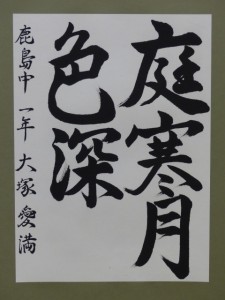 庭寒月
色深
鹿島中 一年 大塚愛満